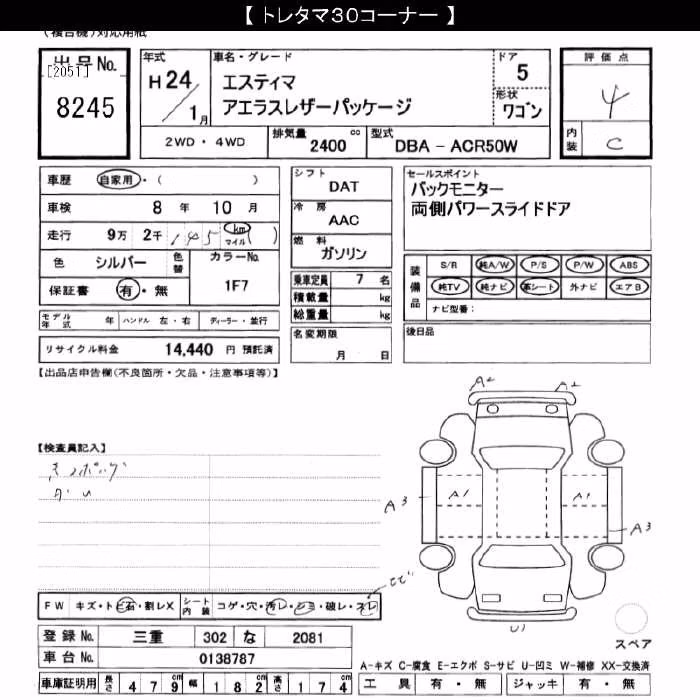 【 トレタマ30コーナー 】
(複合機)対応用紙
出品No.
[2051]
8245
年式
H 24 / 1月
車名・グレード
エスティマ
アエラスレザーパッケージ
ドア
5
形状
ワゴン
評価点
4
内装
C
2WD・4WD
排気量 2400 cc
型式 DBA - ACR50W
車歴 自家用・( )
車検 8 年 10 月
走行 9万 2千 145 km マイル ( )
色 シルバー 色替
カラーNo.
1F7
保証書 有・無
モデル年式 年 ハンドル 左・右 ディーラー・並行
リサイクル料金 14,440 円 預託済
シフト
DAT
冷房
AAC
燃料
ガソリン
乗車定員 7 名
積載量 kg
総重量 kg
名変期限
月 日
セールスポイント
バックモニター
両側パワースライドドア
装備品
S/R 純A/W P/S P/W ABS
純TV 純ナビ 革シート 外ナビ エアB
ナビ型番:
後日品
【出品店申告欄(不良箇所・欠品・注意事項等)】
【検査員記入】
A2 A2
A3 A1 A1 A3
U1
FW キズ・トビ石・割レX
シート内装 コゲ・穴・汚レ・シミ・破レ・スレ
登録No. 三重 302 な 2081
車台No. 0138787
車庫証明用 長さ 479cm 幅 182cm 高さ 174cm
スペア
A-キズ C-腐食 E-エクボ S-サビ U-凹ミ W-補修 XX-交換済
工具 有・無 ジャッキ 有・無